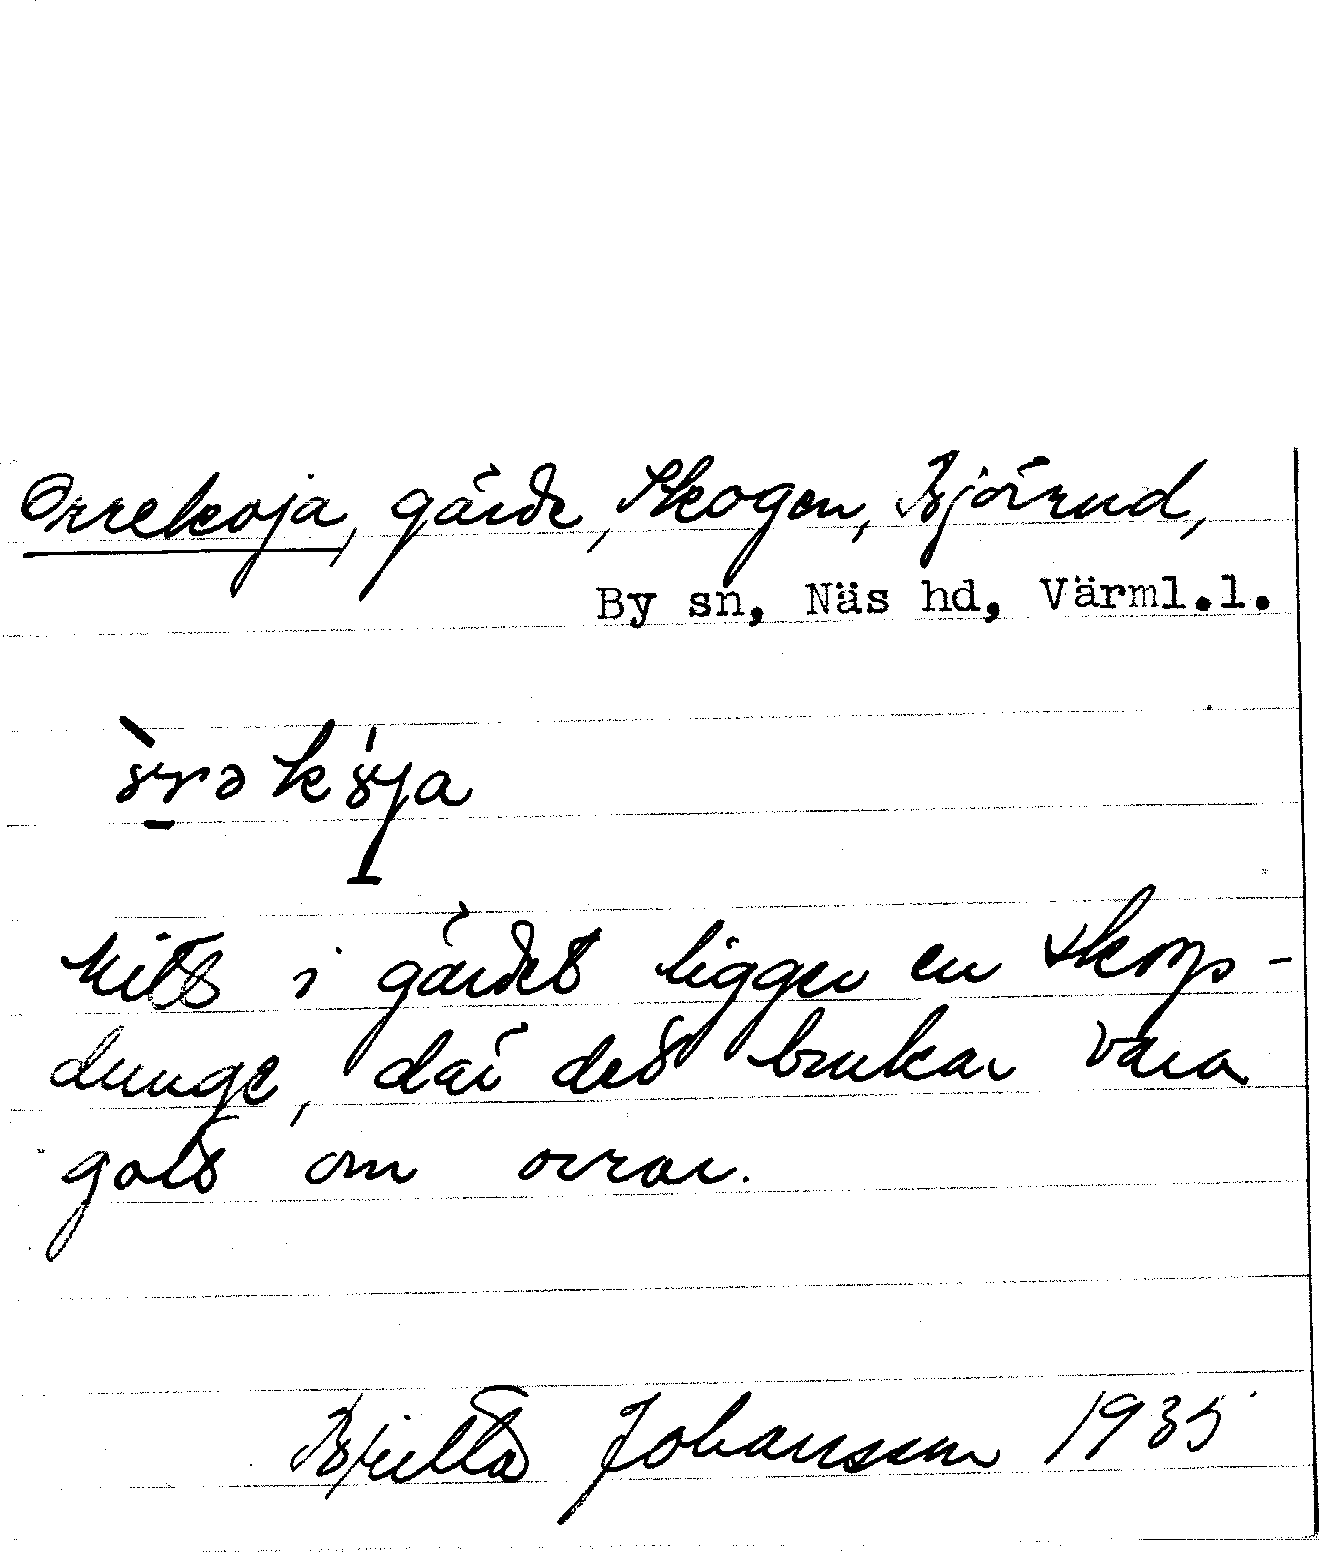 Orrekoja, gärde, Skogen, Björnud,
By sn, Näs hd, Värml.l.
Mitt i gärdet ligger en skogs-
dunge, där det brukar vara
gott om orrar.
Britta Johansson 1935